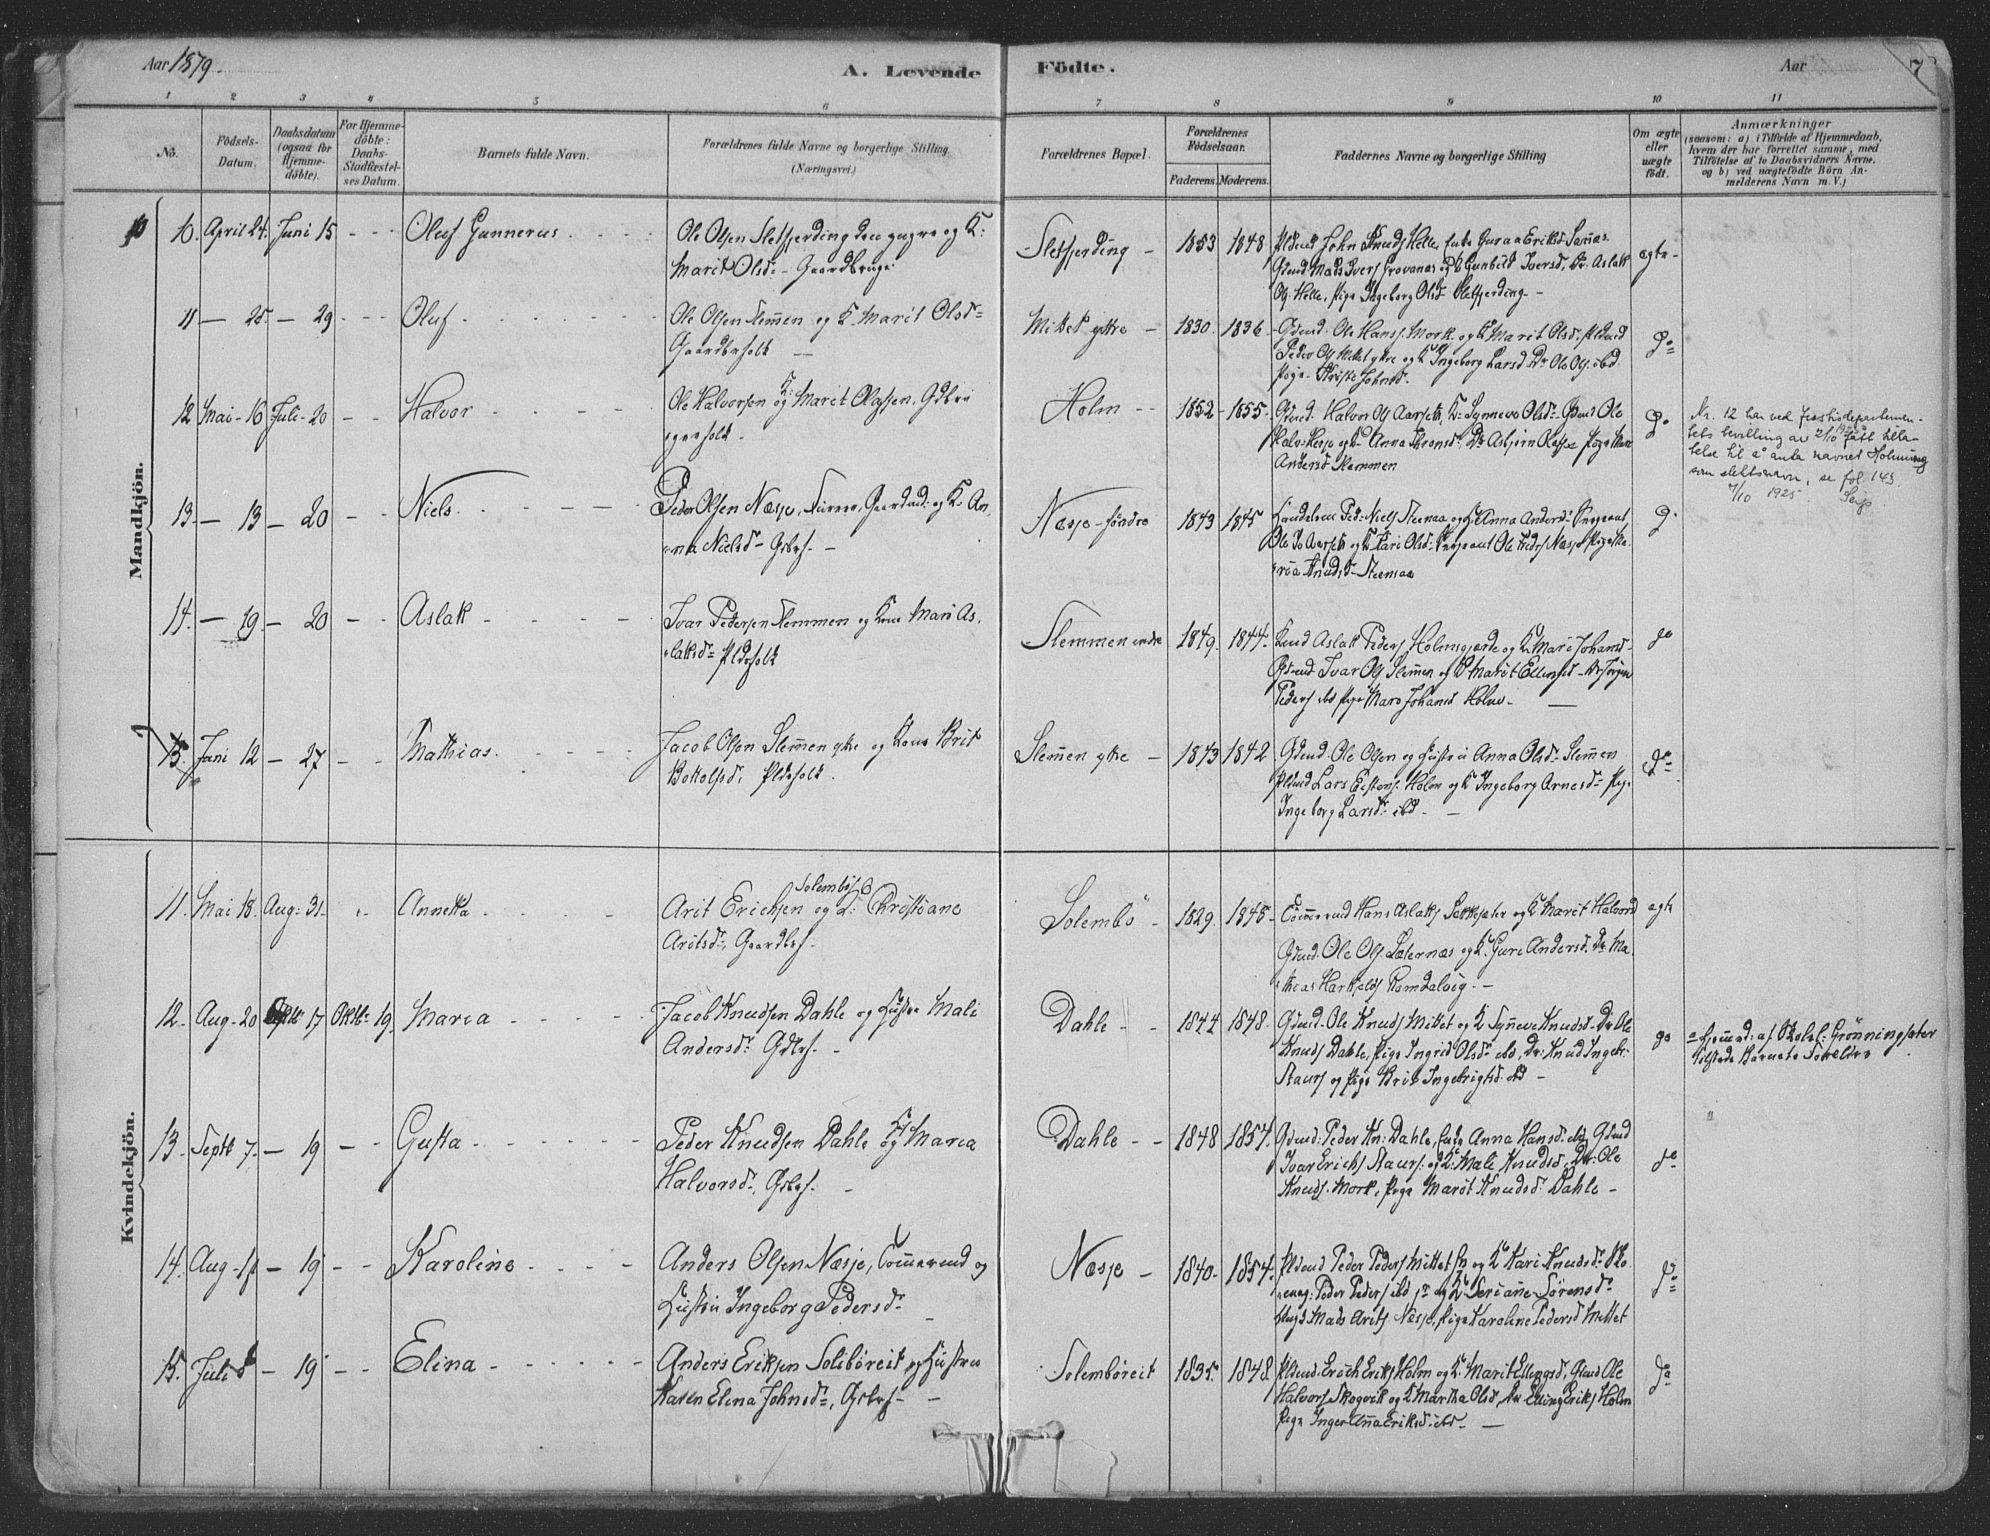 Aar 1879.
A. Levende Födte.
Aar
7
1 2 3 4 5 6 7 8 9 10 11
No.
Födsels-Datum.
Daabsdatum (ogsaa for Hjemme-döbte).
For Hjemme-döbte: Daabs-Stadfæstel-ses Datum.
Barnets fulde Navn.
Forældrenes fulde Navne og borgerlige Stilling (Næringsvei.)
Forældrenes Bopæl.
Forældrenes Födselsaar.
Faderens. Moderens.
Faddernes Navne og borgerlige Stilling
Om ægte eller uægte födt.
Anmærkninger
(saasom: a) i Tilfælde af Hjemmedaab, hvem der har forrettet samme, med Tilföielse af to Daabsvidners Navne. og b) ved uægtefödte Börn An-melderens Navn m. V.)
Mandkjön.
10. April 24. Juni 15 - - Oluf Gunnerus
Ole Olsen Sletfjerding den yngre og K:
Marit Olsd: - Gaardbruge
Sletfjerding - 1853 1848
Pldmd John Knuds Helle, Enke Guraa Eriksd
Gdmd Mads Ivers og K Gunhild Iversd, Dr. Aslak
Ol. Helle, Pige Ingeborg Olsd Sletfjerding -
ægte -
11 — 25 - 29 - - Oluf
Ole Olsen Slemen og K. Marit Olsd=
Gaardbrfolk —
Mittet ytre - 1830. 1836 -
Gdmd. Ole Hans. Mork og K Marit Olsd. Pldmd
Peder Ols Mittet ytre og K Ingeborg Larsd Dr Ole Ols. ibd
Pige Johnsd.
do
12 Mai - 16 Juli - 20 - - Halvor
Ole Halvorsen og K: Marit Olafsen, Gdbr
folk -
Holm - - 1852 - 1855
Gdmd. Halvor Ols Aarseth, K: Synneve Olsd: Ole
Halv. og K Anna Dr Asbjörn Pige
Andersd Slemmen
do
Nr. 12 har ved justisdepartemen-
tets bevilling av 2/10 1925 fått tilla-
telse til å anta navnet Holmung
som slektsnavn, se fol. 143.
7/10 1925. Seip
13 — 13 - 20 - - Niels
Peder Olsen Næsje, Gaardmd: og K. An,
na Nielsd - Gbrf. -
Næsje - söndre 1843 1845
Ped: Niels og K Anna Andersd: Sergeant,
Ole Aarseth og K Kari Olsd: Sergeant Ole Peders Næsje Pige Ma.
Knudsd -
do
14. — 19 - 20 - - Aslak
Ivar Pedersen Slemmen og Kone Mari As.
laksd= Pldsfolk
Slemmen indre 1849. 1844.
Kmd Aslak Peders Holmsgjerde og K. Mari Johansd -
Gdmd. Ivar Ols Slemen og K Marit Ellensd - Dr Jörgen
Peders ibd Pige Mari Johansd Holm - —
do
15. Juni 12 - 27 - - Mathias
Jacob Olsen Slemen ytre og Kone Brit
Bottolfsd, Pldsfolk.
Slemen ytre - 1843 1842
Gdmd. Ole Olsen og Hustru Anna Olsd - Slemen
Pldmd Lars Holm og K Ingeborg Arnesd - Pige
Ingeborg Larsd - ibd - —
do
Kvindekjön.
11. Mai 18. Aug: 31. Annetta
Arit Erichsen Solembö og K: Christiane
Aritsd, Gaardbrf -
Solembö - 1829. 1845 -
Hans Aslaks Sekkesæter og K Marit Halvord
Gdmd. Ole Ols. Sæternæs og K. Guri Andersd. Dr Ma.
thias Romdalsvig. -
ægte
12. Aug - 20 Septbr 17 Oktbr. 19. Maria
Jacob Knudsen Dahle og Hustru Mali
Andersd: Gdbrf. -
Dahle - - 1844 1848
Gdmd. Ole Knuds Mittet og K Synneve Knudsd - Dr Ole
Knuds Dahle, Pige Ingrid Olsd ibd, Dr: Knud Ingebr.
Staurs og Pige Brit Ingebrigtsd. ibd -
do
Hjemmed: af Grönningsæter
tilstede Barnets Forældre
13. Septb 7. - 19 - - Gusta
Peder Knudsen Dahle og K Maria
Halvorsd., Gbrf. -
Dahle - - 1848 1854.
Gdmd: Peder Kn: Dahle, Enke Anna Hansd. ibd, Gdmd
Ivar Erichs Staurs: og K. Mali Knudsd, Dr: Ole
Knuds. Mork, Pige Marit Knudsd: Dahle -
do
14. Aug - 19 - - Karoline
Anders Olsen Næsje, og
Hustru Ingeborg Pedersd -
Næsje - 1840. 1854.
Pldmd Peder Peders Mittet og K Kari Knudsd.
Peder Peders ibd og K Seriane Sörensd
Mads Arits Næsje, Pige Karoline Pedersd Mittet
do
15. Juli 8 - 19 - - Elina
Anders Eriksen Soliböreit og Hustru
Karen Elina Johnsd:, Gbrf - -
Solemböreit 1835. 1848.
Pldmd. Erich Eriks Holm og K. Marit Ellingsd, Gdmd Ole
Halvors Skogvik og K Martha Olsd, Dr Elling Eriks Holm
Pige Inger Anna Eriksd. ibd - —
do